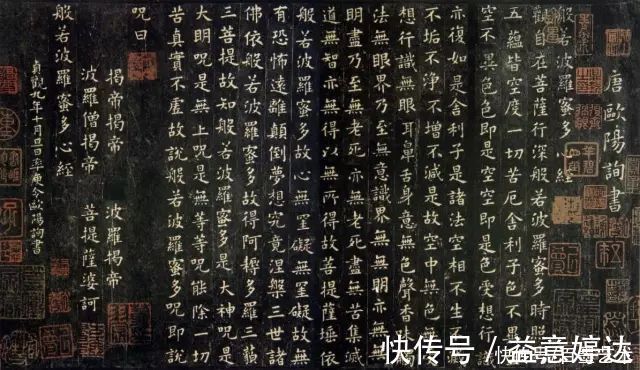 唐歐陽詢書
般若波羅蜜多心經
觀自在菩薩行深般若波羅蜜多時照
五蘊皆空度一切苦厄舍利子色不異
空不異色色即是空空即是色受想行
亦復如是舍利子是諸法空相不生不
不垢不淨不增不減是故空中無色無
想行識無眼耳鼻舌身意無色聲香
法無眼界乃至無意識界無無明亦無
明盡乃至無老死亦無老死盡無苦集滅
道無智亦無得以無所得故菩提薩埵依
般若波羅蜜多故心無罣礙無罣礙故無
有恐怖遠離顛倒夢想究竟涅槃三世諸
佛依般若波羅蜜多故得阿耨多羅三藐
三菩提故知般若波羅蜜多是大神咒是
大明咒是無上咒是無等等咒能除一切
苦真實不虛故說般若波羅蜜多咒即說
咒曰
揭帝揭帝 波羅揭帝
波羅僧揭帝 菩提薩婆訶
般若波羅蜜多心經
貞觀九年十月旦日率更令歐陽詢書
快传号/益意婷达